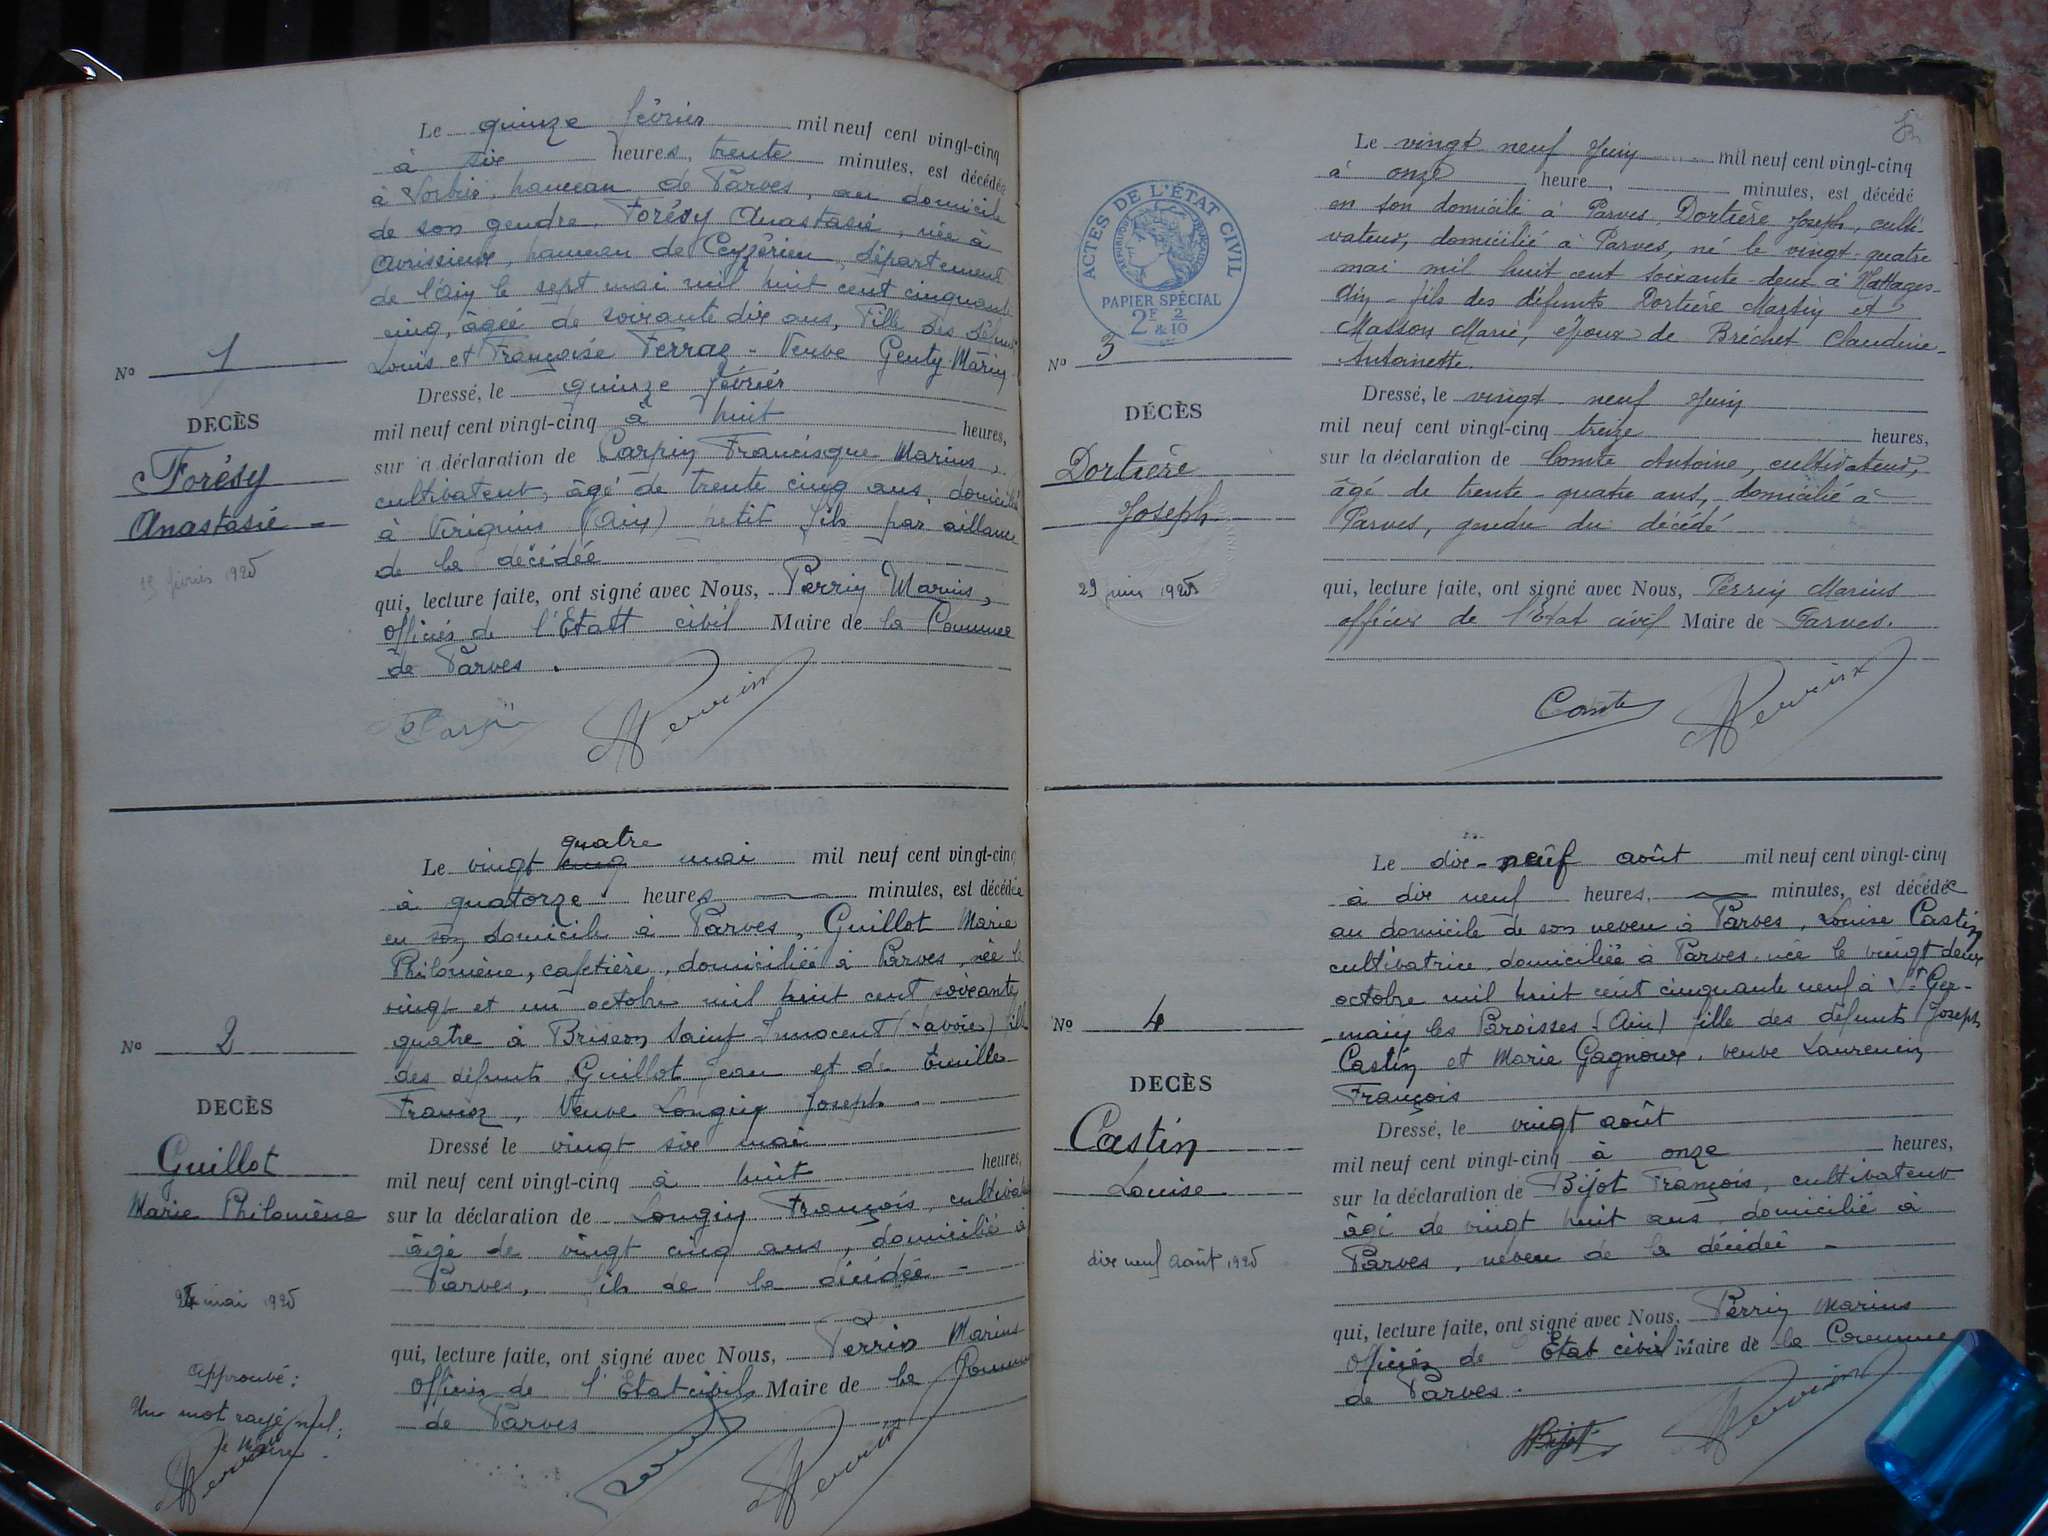 Le quinze février mil neuf cent vingt-cinq
à six heures, trente minutes, est décédée
à Sorbier, hameau de Parves, au domicile
de son gendre, Forésy Anastasie, née à
Avrissieux, hameau de Ceyzérieu, département
de l'Ain le sept mai mil huit cent cinquante
cinq, âgée de soixante dix ans, Fille des défunts
Louis et Françoise Ferrae - Veuve Genty Marin
No 1
Dressé, le quinze février
mil neuf cent vingt-cinq à huit heures,
DECÈS
sur a déclaration de Carpin Francisque Marius,
Forésy
cultivateur, âgé de trente cinq ans, domicilié
Anastasie -
à Virignin (Ain) petit fils par alliance
de la décédée
15 février 1925
qui, lecture faite, ont signé avec Nous, Perrin Marius,
Officier de l'Etatt civil Maire de la Commune
de Parves .
Carpin Perrin
Le vingt quatre cinq mai mil neuf cent vingt-cinq
à quatorze heures minutes, est décédée
en son domicile à Parves, Guillot Marie
Philomène, cafetière, domiciliée à Parves, née le
vingt et un octobre mil huit cent soixante
quatre à Brison Saint Innocent (Savoie) fille
des défunts Guillot Jean et de
No 2
Veuve Longin Joseph
DECÈS
Dressé le vingt six mai
Guillot
mil neuf cent vingt-cinq à huit heures,
Marie Philomène
sur la déclaration de Longin François, cultivateur
âgé de vingt cinq ans, domicilié à
Parves, fils de la décédée -
24 mai 1925
qui, lecture faite, ont signé avec Nous, Perrin Marius
Approuvé :
Officier de l'Etat civil Maire de la Commune
Un mot rayé nul.
de Parves
le Maire
Perrin
Perrin
ACTES DE L'ÉTAT CIVIL
RÉPUBLIQUE FRANÇAISE
PAPIER SPÉCIAL
2F 2
& 10
Le vingt neuf Juin mil neuf cent vingt-cinq
à onze heure, minutes, est décédé
en son domicile à Parves, Dortière Joseph, culti-
vateur, domicilié à Parves, né le vingt-quatre
mai mil huit cent soixante-deux à Nattages
Ain - fils des défunts Dortière Martin et
Masson Marie, époux de Bréchet Claudine-
Antoinette.
No 3
Dressé, le vingt neuf Juin
DÉCÈS
mil neuf cent vingt-cinq treize heures,
Dortière
sur la déclaration de Comte Antoine, cultivateur,
âgé de trente-quatre ans, domicilié à
Joseph
Parves, gendre du décédé
29 juin 1925
qui, lecture faite, ont signé avec Nous, Perrin Marius
officier de l'Etat civil Maire de Parves.
Comte Perrin
Le dix-neuf août mil neuf cent vingt-cinq
à dix neuf heures, minutes, est décédée
au domicile de son neveu à Parves, Louise Castin
cultivatrice, domiciliée à Parves, née le vingt deux
octobre mil huit cent cinquante neuf à St Ger-
-main les Paroisses (Ain) fille des défunts Joseph
Castin et Marie Gagnoux, veuve Laurencin
François
No 4
Dressé, le vingt août
DECÈS
mil neuf cent vingt-cinq à onze heures,
Castin
sur la déclaration de Bijot François, cultivateur
Louise
âgé de vingt huit ans, domicilié à
Parves, neveu de la décédée -
dix neuf août 1925
qui, lecture faite, ont signé avec Nous, Perrin Marius
Officier de Etat civil Maire de la Commune
de Parves.
Bijot Perrin